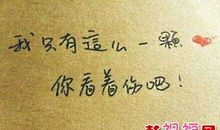 我只有這么一颗
你看着伤吧！